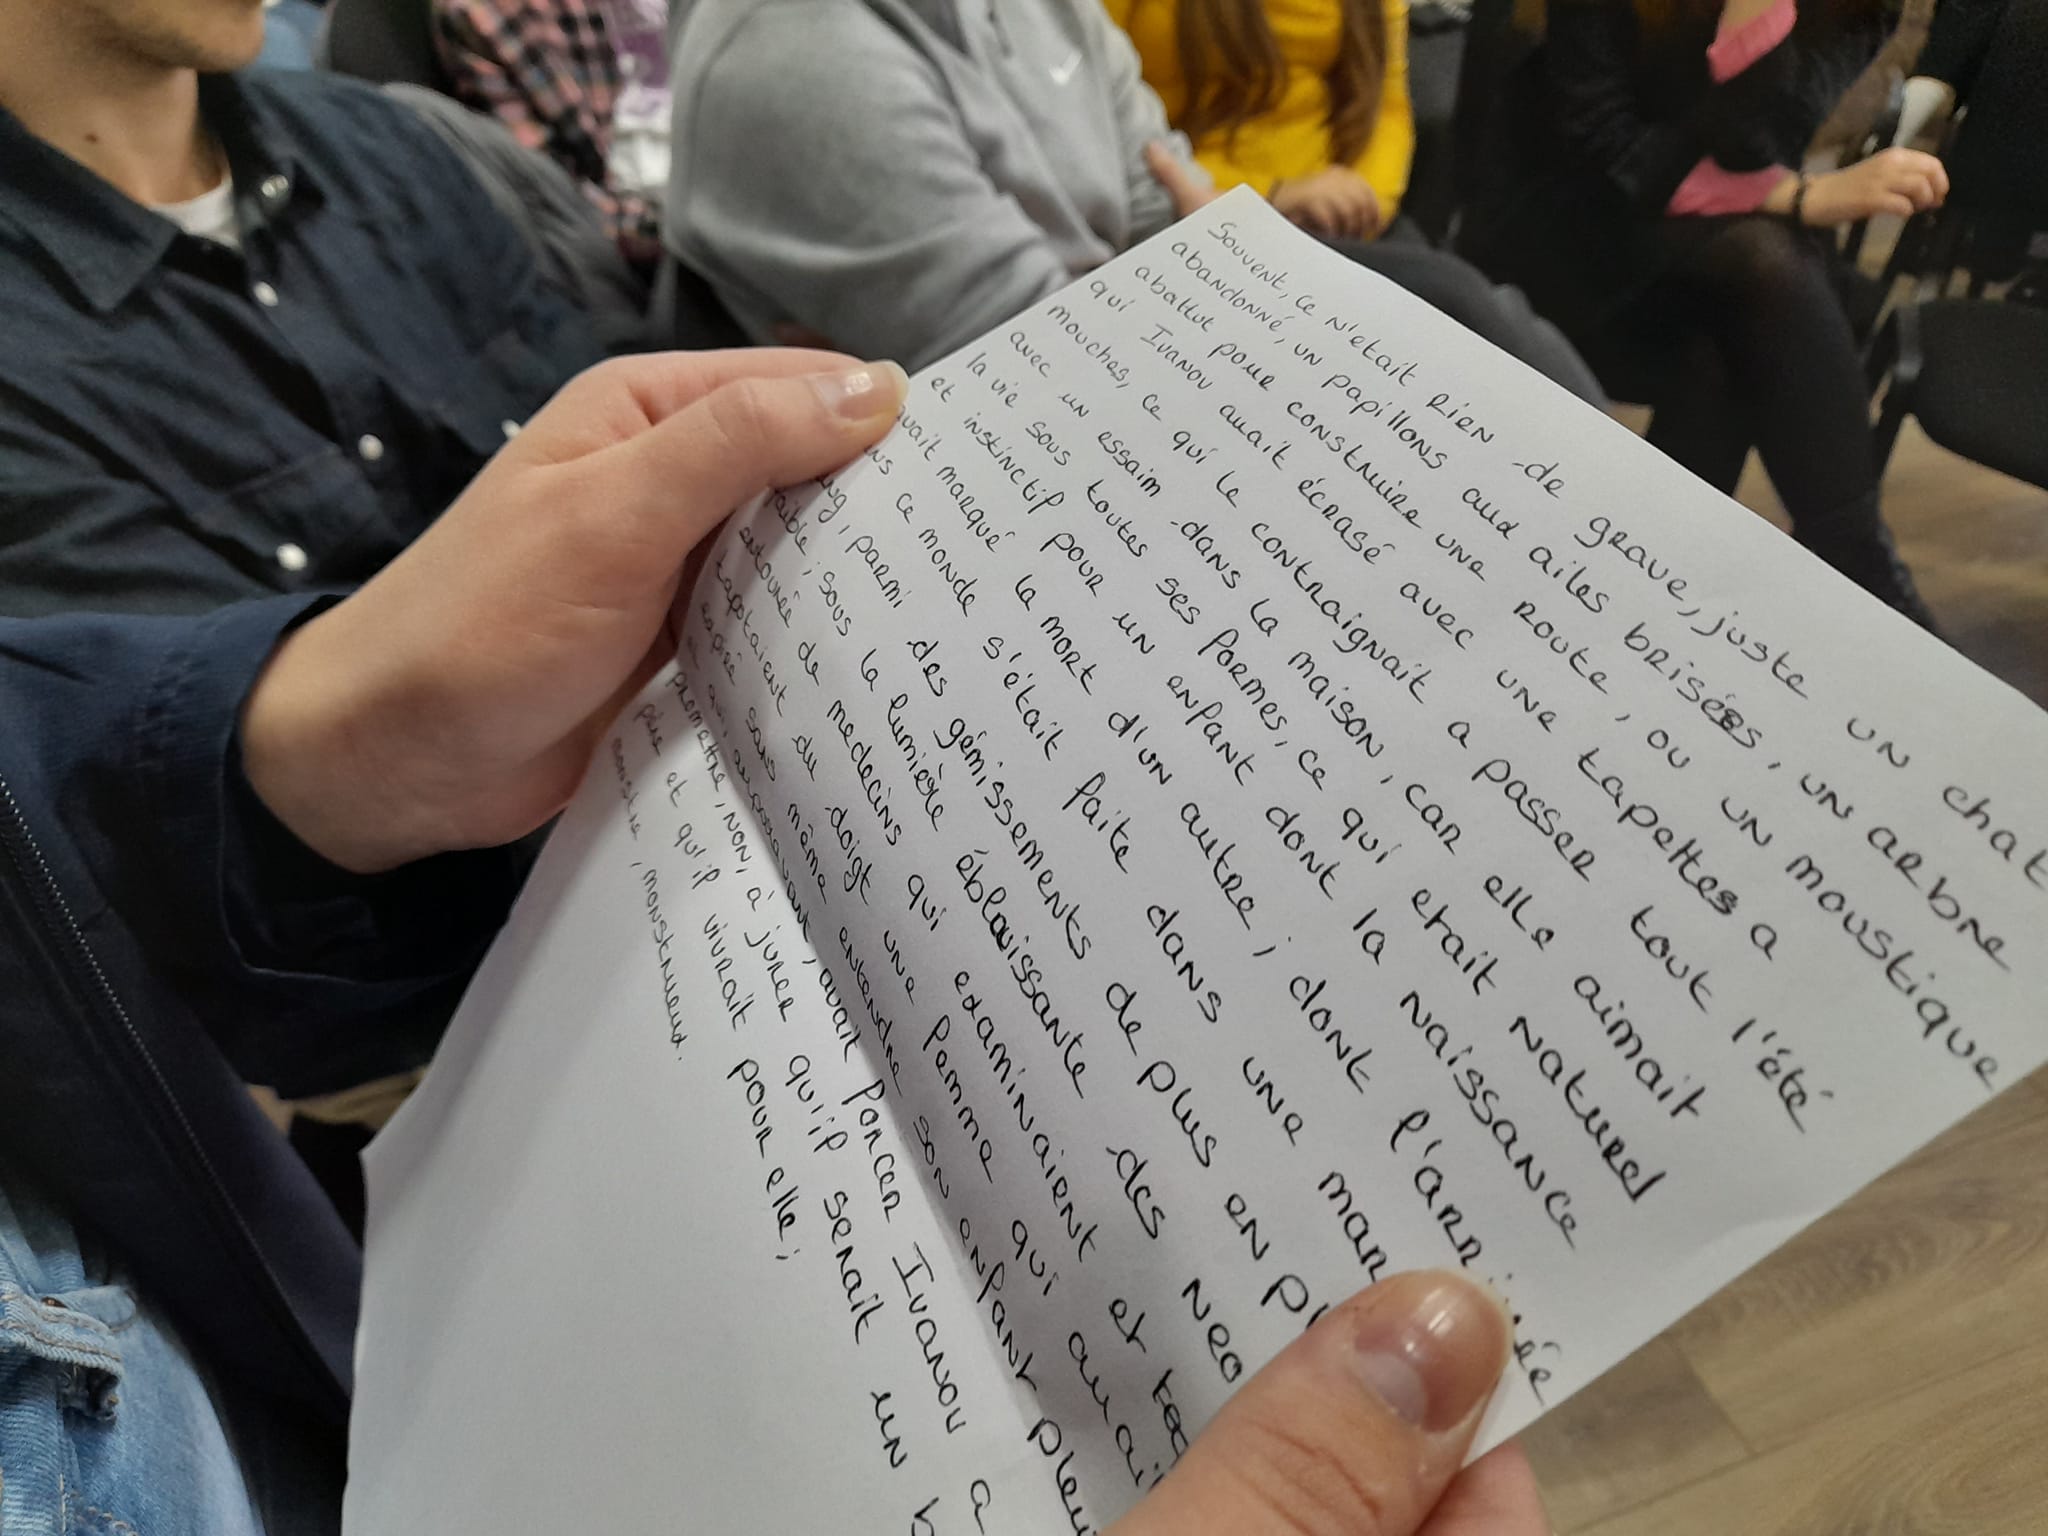 Souvent, ce n'etait rien de grave, juste un chat
abandonné, un papillons aux ailes brisées, un arbre
abattut pour construire une route, ou un moustique
qui Ivanov aurait écrasé avec une tapettes a
mouches, ce qui le contraignait a passer tout l'été
avec un essaim dans la maison, car elle aimait
la vie sous toutes ses formes, ce qui etait naturel
et instinctif pour un enfant dont la naissance
avait marqué la mort d'un autre ; dont l'arrivée
ce monde s'était faite dans une
, parmi des gémissements de plus en
faible ; sous la lumière éblouissante des neo
entourée de medecins qui examinaient et
tapotaient du doigt une femme qui
expiré sans même entendre son enfant
et qui, auparavant, avait forcer Ivanov a
promettre, non, à jurer qu'il serait un
père et qu'il vivrait pour elle ;
monstre, monstrueux.